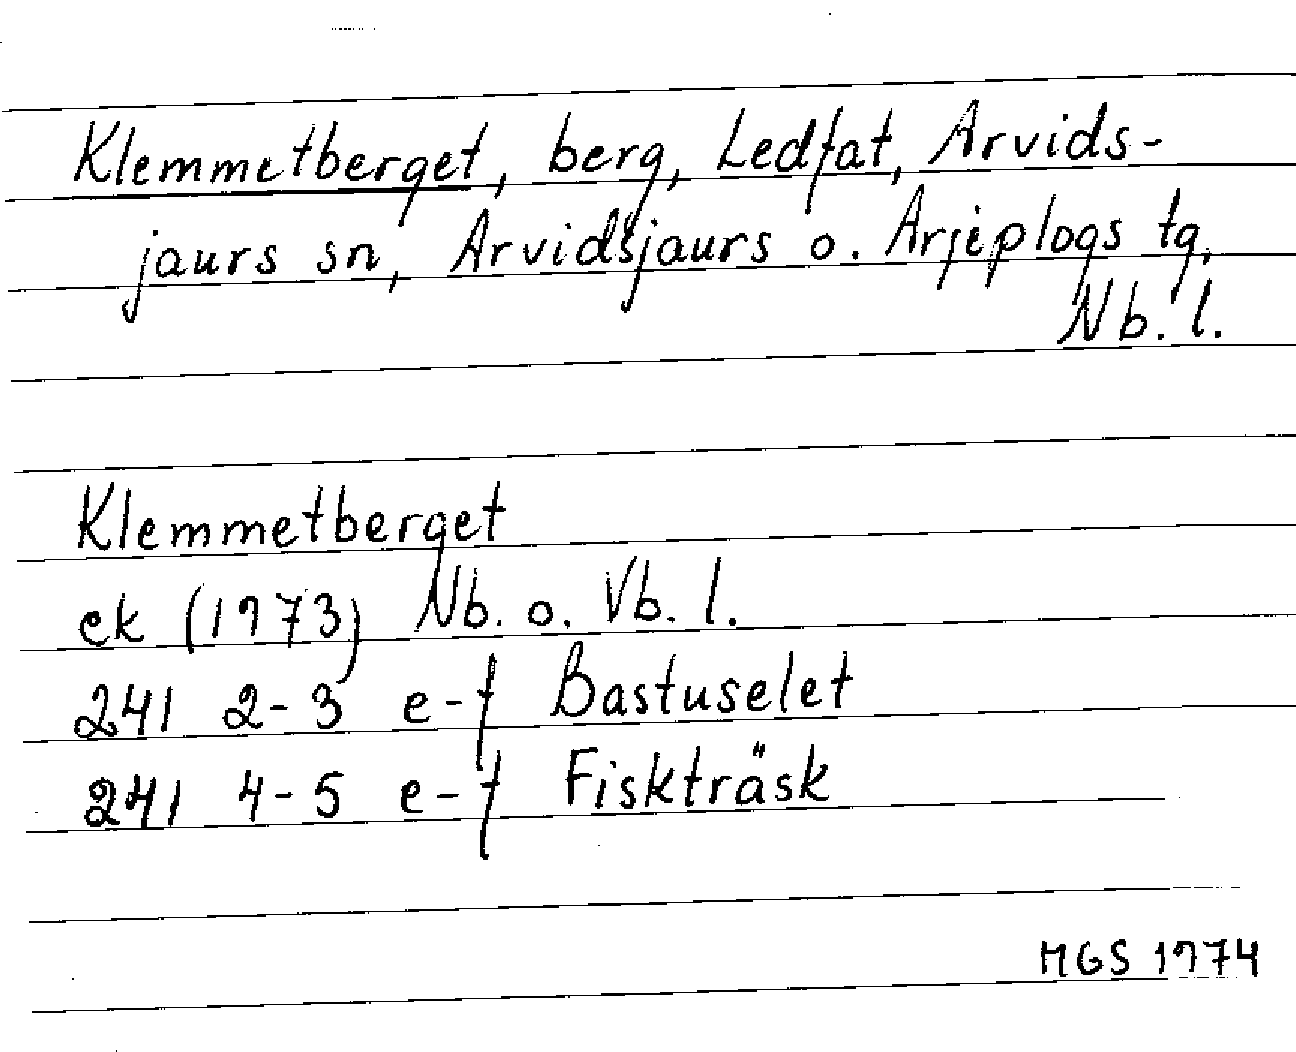 Klemmetberget, berg, Ledfat, Arvids-
jaurs sn, Arvidsjaurs o. Arjeplogs tg,
Nb. l.
Klemmetberget
ek (1973) Nb. o. Vb. l.
241 2-3 e-f Bastuselet
241 4-5 e-f Fiskträsk
MGS 1974